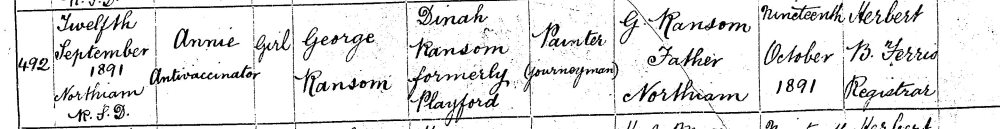 492
Twelfth
September
1891
Northiam
R.S.D.
Annie
Antivaccinator
Girl
George
Ransom
Dinah
Ransom
formerly
Playford
Painter
(Journeyman)
G. Ransom
Father
Northiam
Nineteenth
October
1891
Herbert
B. Ferris
Registrar